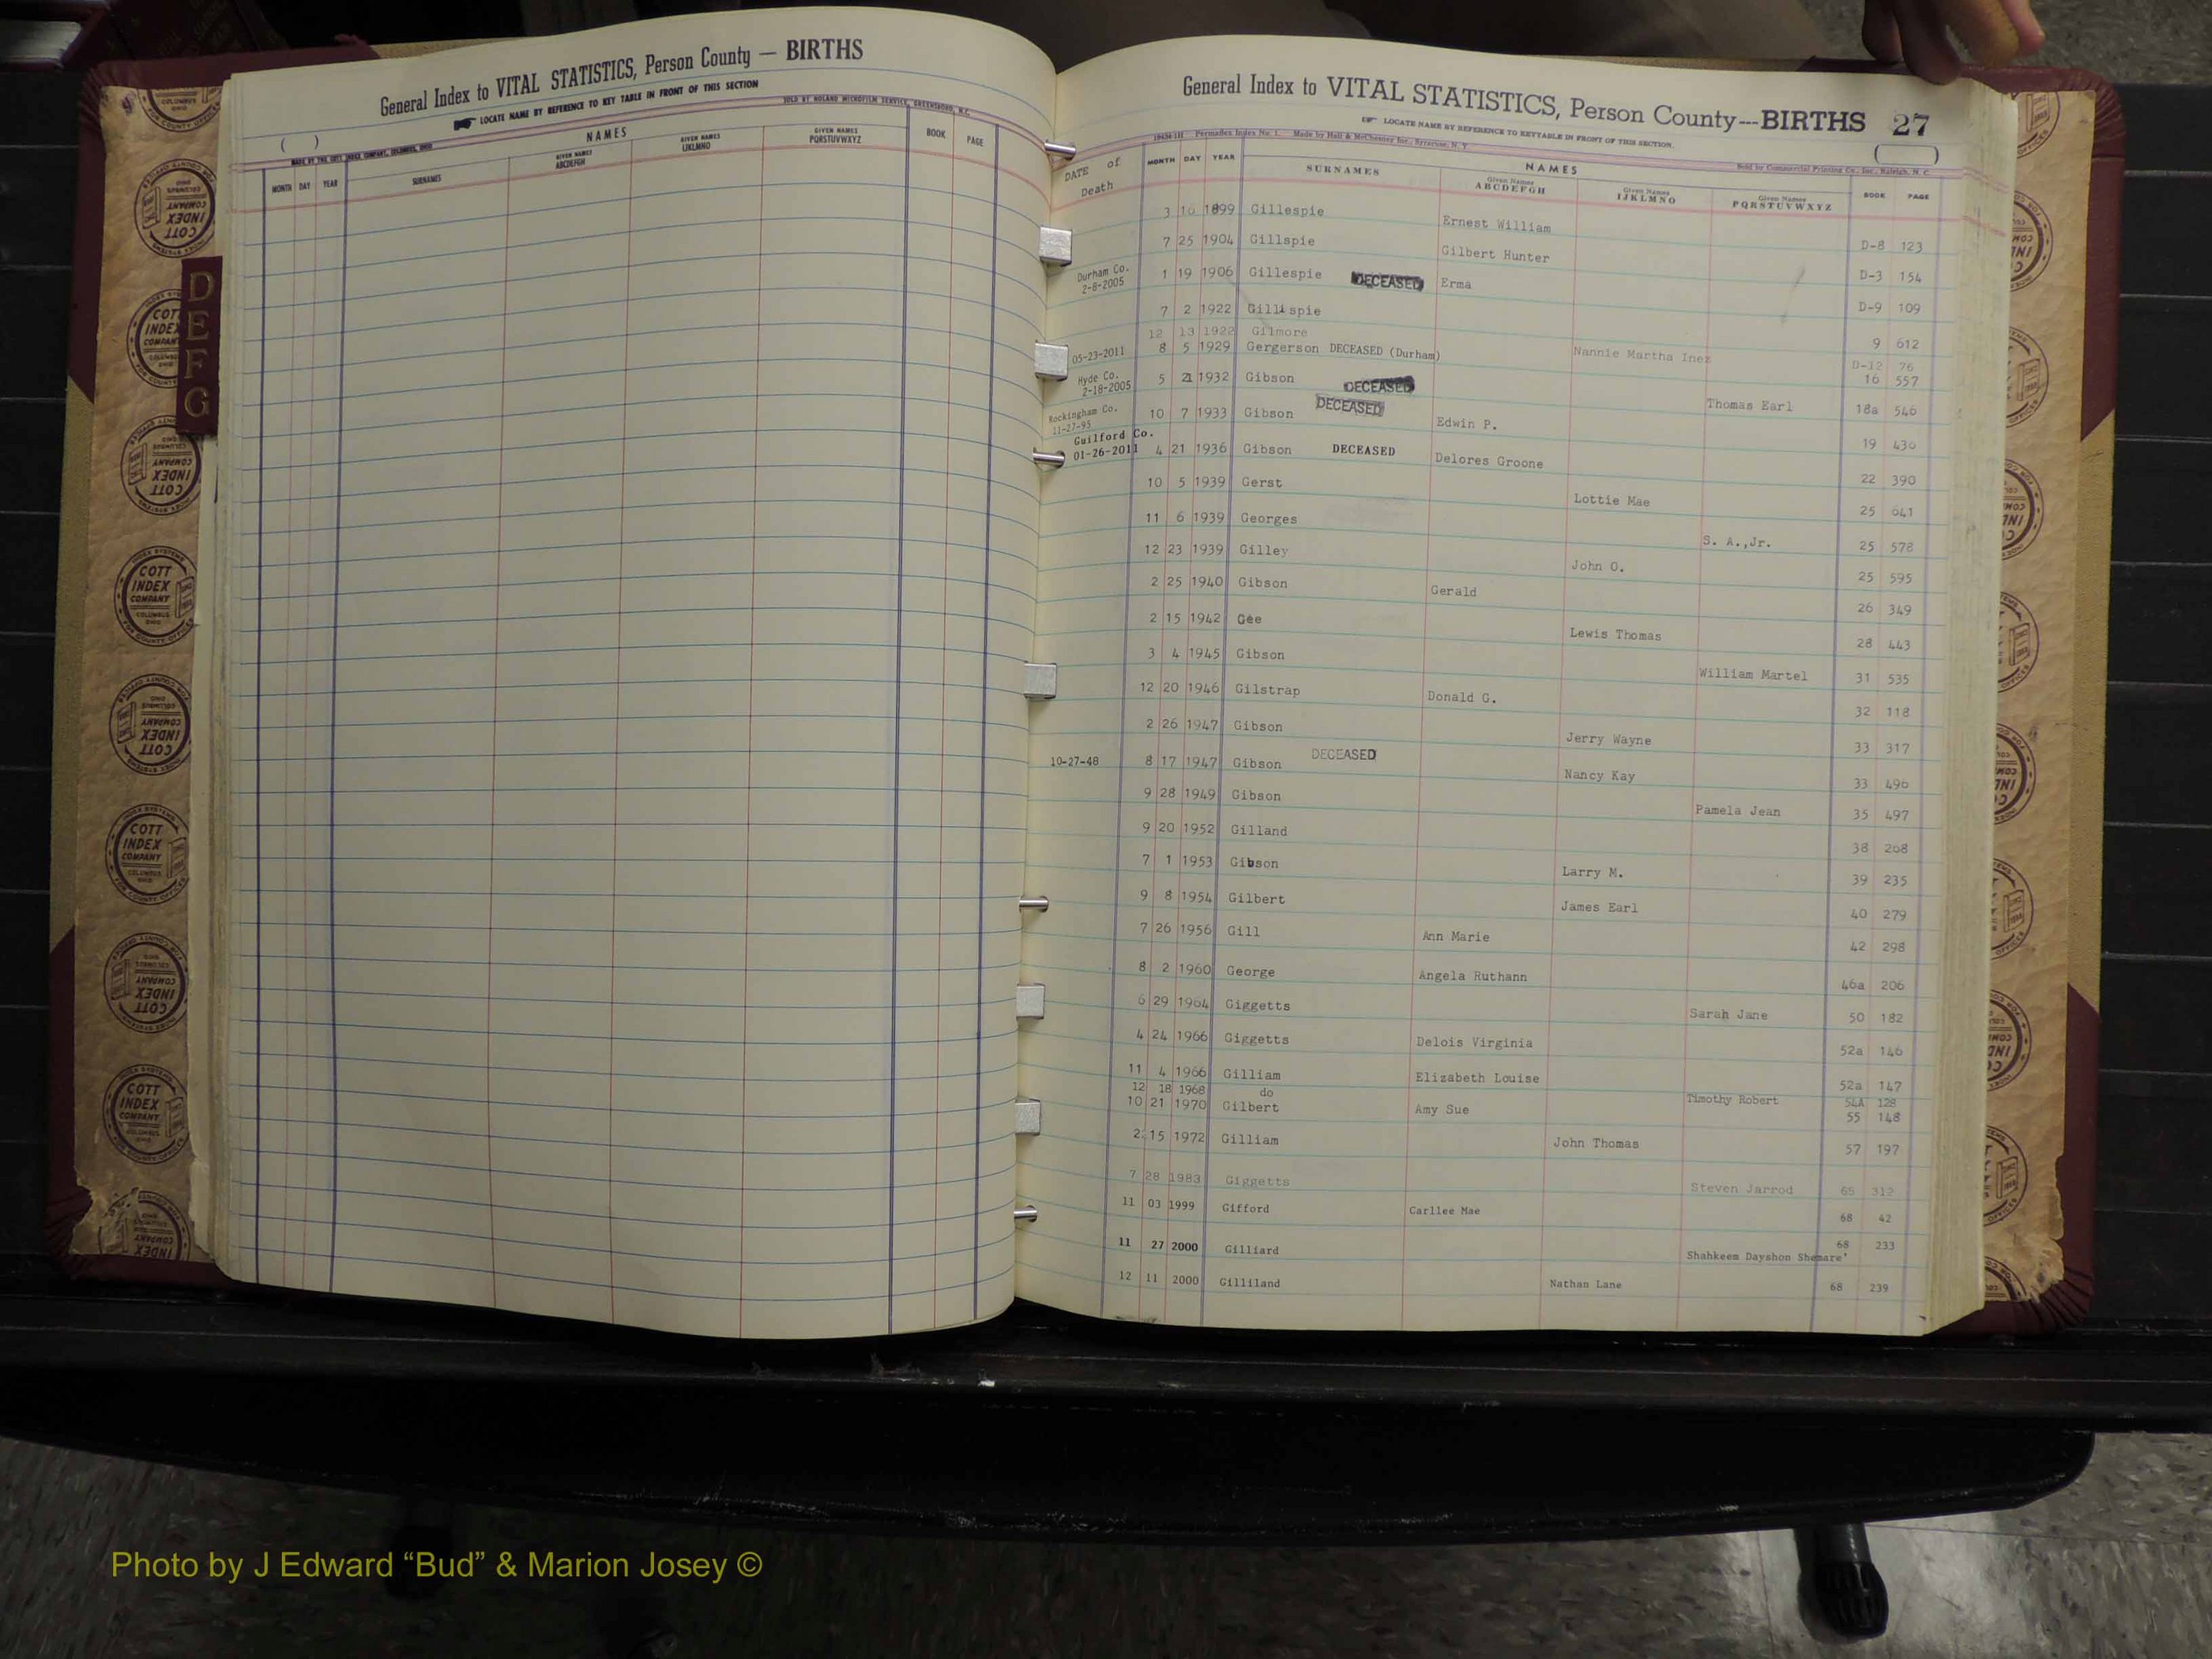 General Index to VITAL STATISTICS, Person County — BIRTHS
LOCATE NAME BY REFERENCE TO KEY TABLE IN FRONT OF THIS SECTION
SOLD BY NOLAND MICROFILM SERVICE, GREENSBORO, N.C.
( )
MADE BY THE COTT INDEX COMPANY, COLUMBUS, OHIO
NAMES
MONTH DAY YEAR SURNAMES GIVEN NAMES ABCDEFGH GIVEN NAMES IJKLMNO GIVEN NAMES PQRSTUVWXYZ BOOK PAGE
D
E
F
G
COTT INDEX COMPANY COLUMBUS OHIO
General Index to VITAL STATISTICS, Person County---BIRTHS 27
LOCATE NAME BY REFERENCE TO KEYTABLE IN FRONT OF THIS SECTION.
Permaflex Index No. 1. Made by Hall & McChesney Inc., Syracuse, N. Y.
Sold by Commercial Printing Co., Inc., Raleigh, N. C.
( )
NAMES
DATE of Death MONTH DAY YEAR SURNAMES Given Names ABCDEFGH Given Names IJKLMNO Given Names PQRSTUVWXYZ BOOK PAGE
3 16 1899 Gillespie Ernest William D-8 123
7 25 1904 Gillspie Gilbert Hunter D-3 154
Durham Co. 2-8-2005 1 19 1906 Gillespie DECEASED Erma D-9 109
7 2 1922 Gillispie 9 612
12 13 1922 Gilmore Nannie Martha Inez D-12 76
05-23-2011 8 5 1929 Gergerson DECEASED (Durham) 16 557
Hyde Co. 2-18-2005 5 21 1932 Gibson DECEASED Thomas Earl 18a 546
Rockingham Co. 11-27-95 10 7 1933 Gibson DECEASED Edwin P. 19 430
Guilford Co. 01-26-2011 4 21 1936 Gibson DECEASED Delores Groone 22 390
10 5 1939 Gerst Lottie Mae 25 641
11 6 1939 Georges S. A.,Jr. 25 578
12 23 1939 Gilley John O. 25 595
2 25 1940 Gibson Gerald 26 349
2 15 1942 Gee Lewis Thomas 28 443
3 4 1945 Gibson William Martel 31 535
12 20 1946 Gilstrap Donald G. 32 118
2 26 1947 Gibson Jerry Wayne 33 317
10-27-48 8 17 1947 Gibson DECEASED Nancy Kay 33 496
9 28 1949 Gibson Pamela Jean 35 497
9 20 1952 Gilland 38 268
7 1 1953 Gibson Larry M. 39 235
9 8 1954 Gilbert James Earl 40 279
7 26 1956 Gill Ann Marie 42 298
8 2 1960 George Angela Ruthann 46a 206
6 29 1964 Giggetts Sarah Jane 50 182
4 24 1966 Giggetts Delois Virginia 52a 146
11 4 1966 Gilliam Elizabeth Louise 52a 147
12 18 1968 do Timothy Robert 54A 128
10 21 1970 Gilbert Amy Sue 55 148
2 15 1972 Gilliam John Thomas 57 197
7 28 1983 Giggetts Steven Jarrod 65 312
11 03 1999 Gifford Carllee Mae 68 42
11 27 2000 Gilliard Shahkeem Dayshon Shemare' 68 233
12 11 2000 Gilliland Nathan Lane 68 239
Photo by J Edward “Bud” & Marion Josey ©